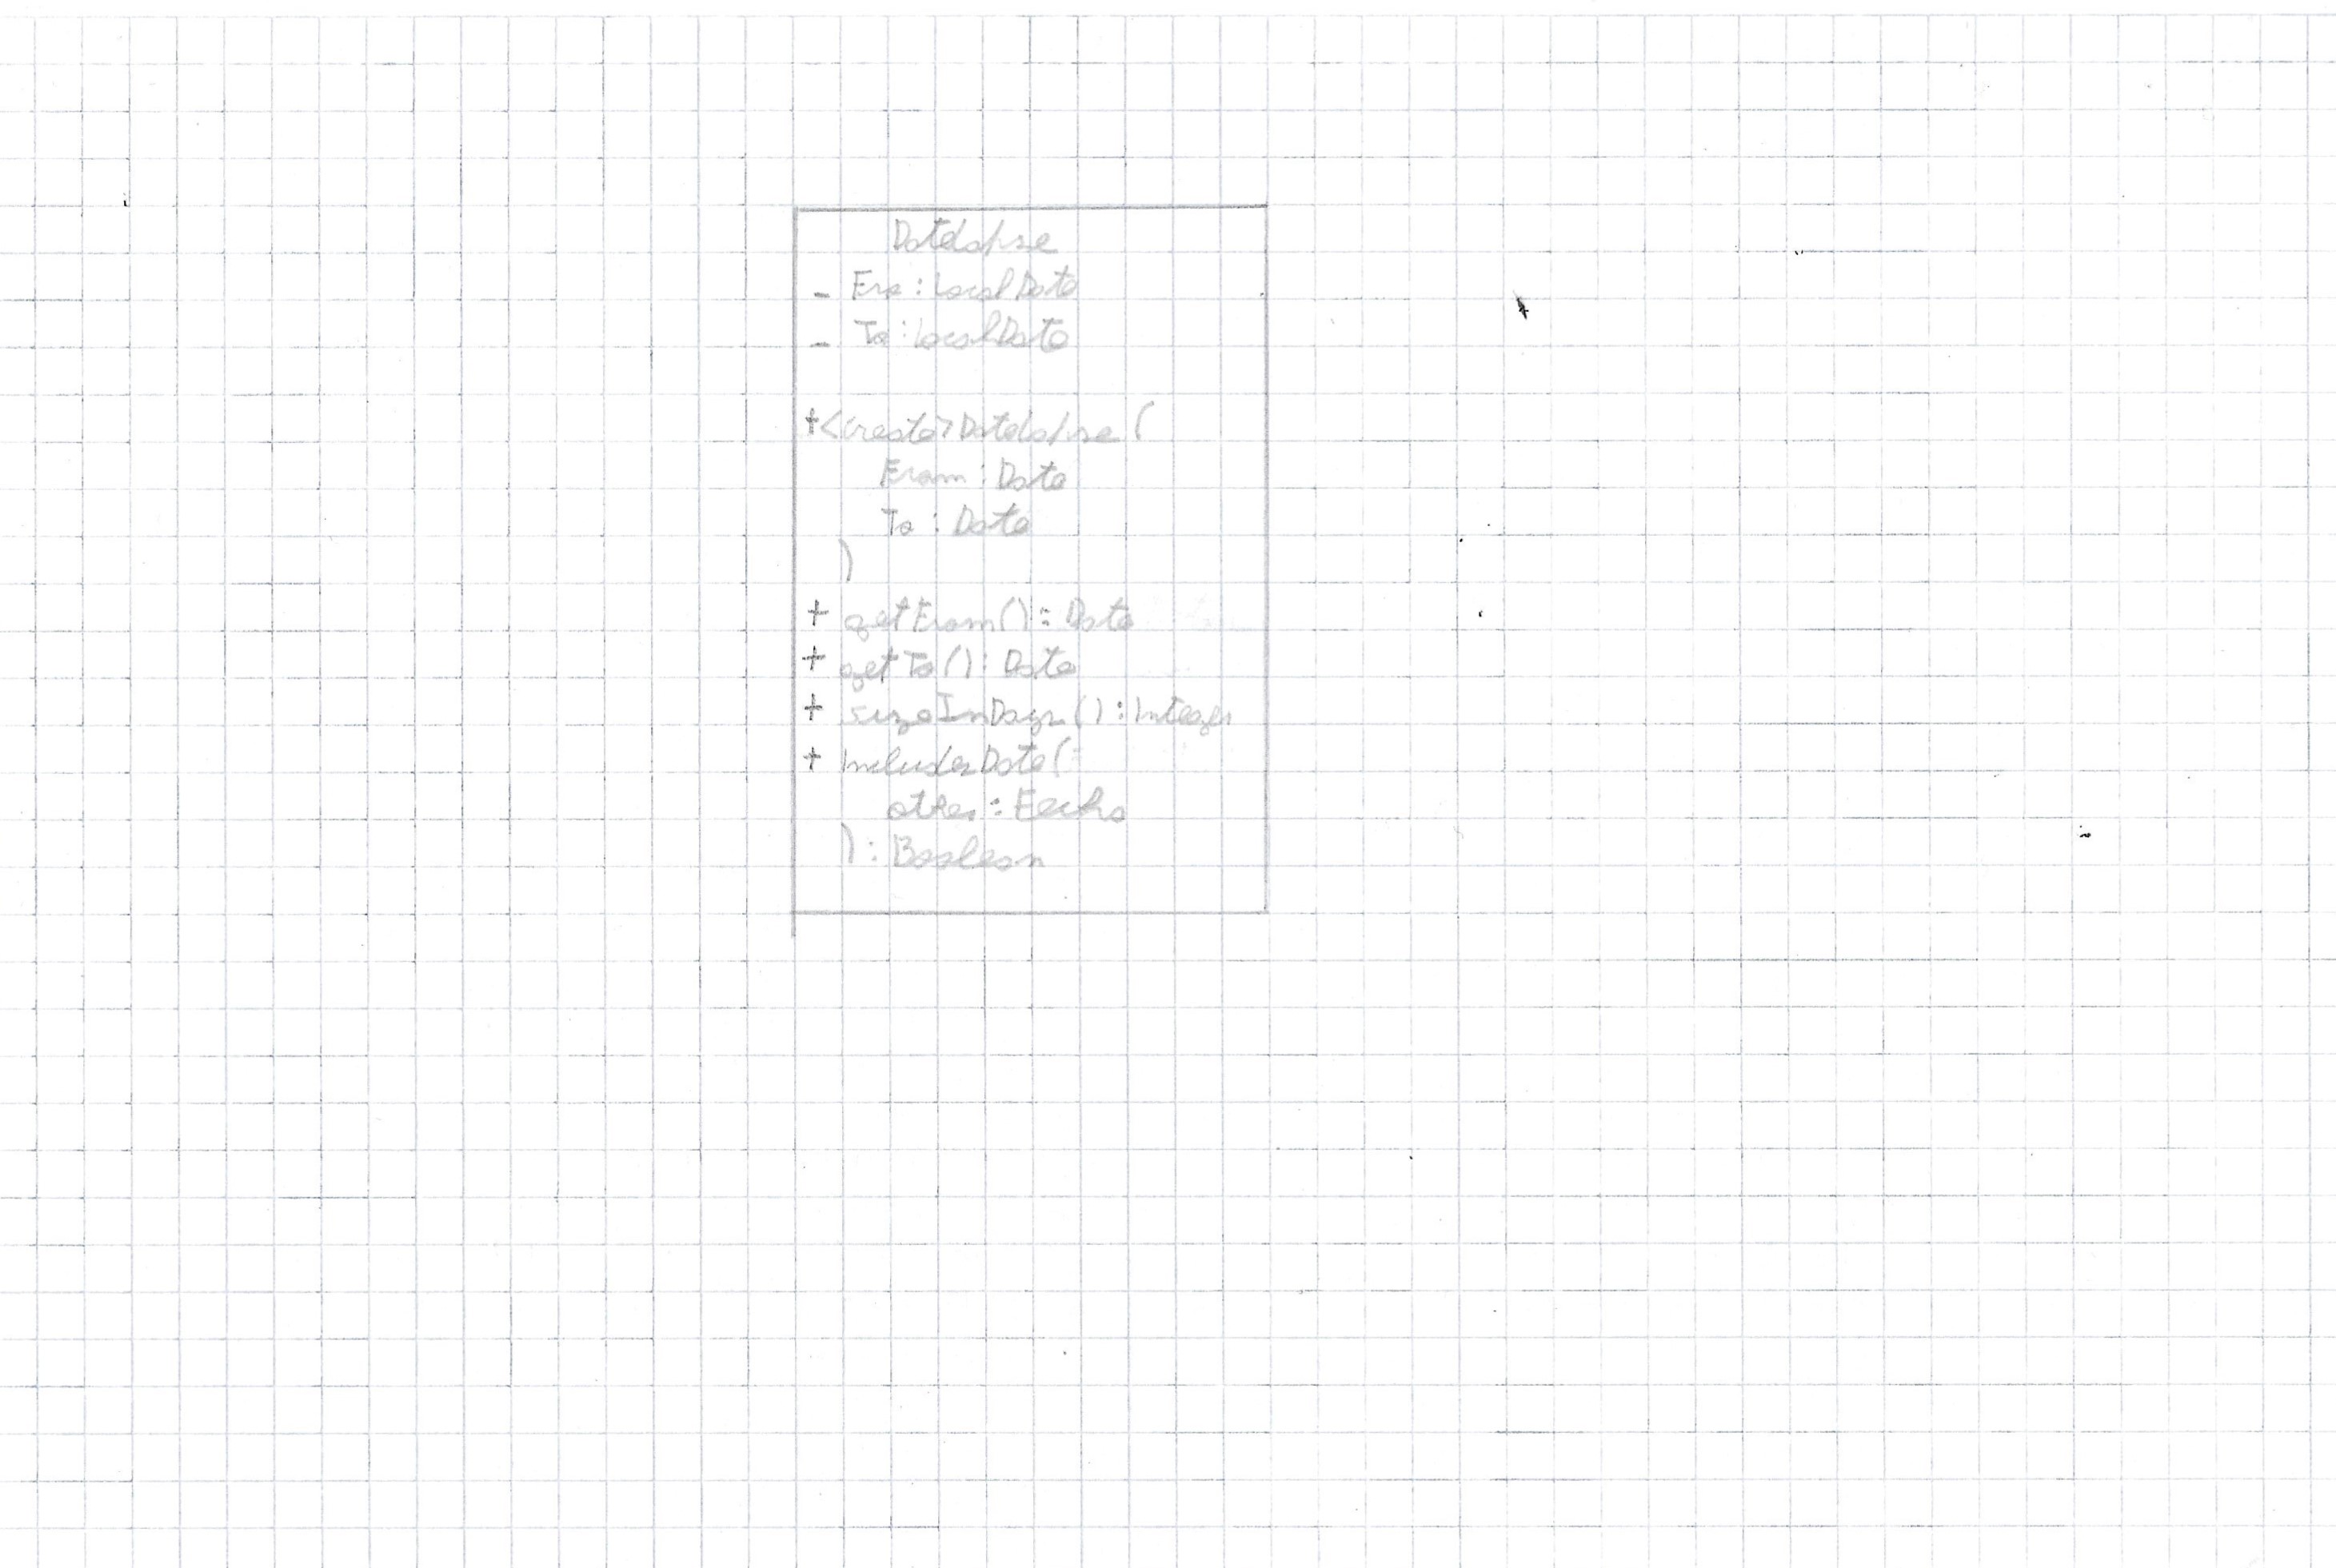 Datelapse
- Fro: LocalDate
- To: LocalDate
+<create>Datelapse(
From: Date
To: Date
)
+ getFrom(): Date
+ getTo(): Date
+ sizeInDays(): Integer
+ IncludesDate(
other: Fecha
): Boolean